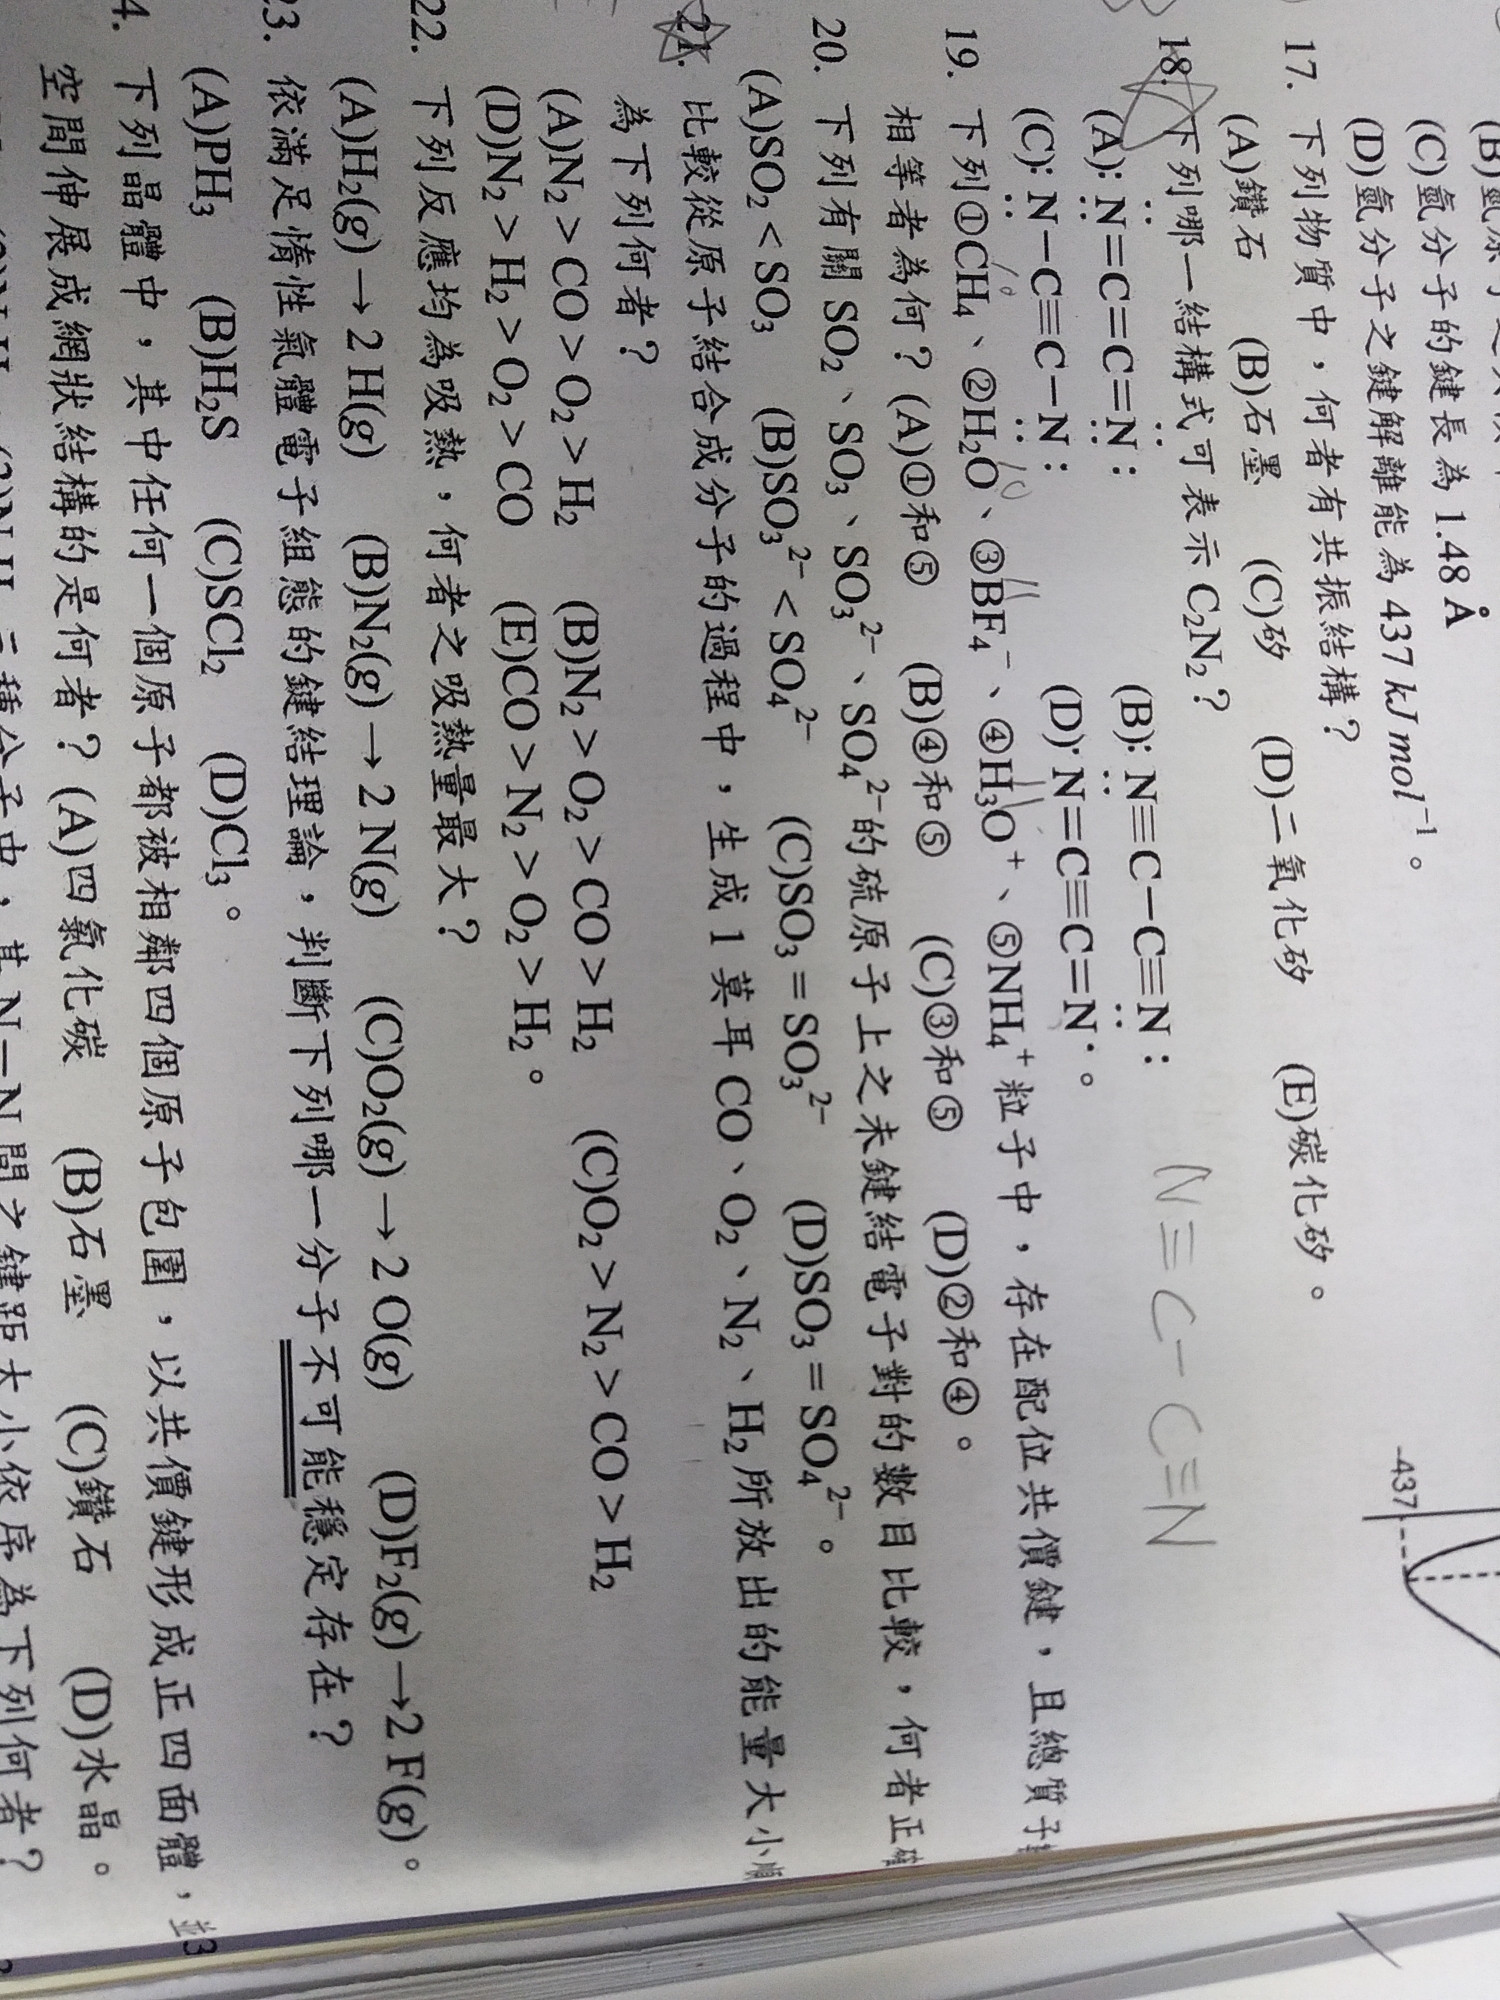 (C)氫分子的鍵長為 1.48 Å
(D)氫分子之鍵解離能為 437 kJ mol⁻¹。
-437
17. 下列物質中，何者有共振結構？
(A)鑽石 (B)石墨 (C)矽 (D)二氧化矽 (E)碳化矽。
18. 下列哪一結構式可表示 C₂N₂？
(A):N̤̈=C=C=N̤̈: (B):N̤≡C−C≡N̤:
(C):N̤̈−C≡C−N̤̈: (D)·N=C≡C=N·。
N≡C−C≡N
19. 下列①CH₄、②H₂O、③BF₄⁻、④H₃O⁺、⑤NH₄⁺粒子中，存在配位共價鍵，且總質子
相等者為何？(A)①和⑤ (B)④和⑤ (C)③和⑤ (D)②和④。
20. 下列有關 SO₂、SO₃、SO₃²⁻、SO₄²⁻的硫原子上之未鍵結電子對的數目比較，何者正確
(A)SO₂<SO₃ (B)SO₃²⁻<SO₄²⁻ (C)SO₃=SO₃²⁻ (D)SO₃=SO₄²⁻。
21. 比較從原子結合成分子的過程中，生成 1 莫耳 CO、O₂、N₂、H₂所放出的能量大小順
為下列何者？
(A)N₂>CO>O₂>H₂ (B)N₂>O₂>CO>H₂ (C)O₂>N₂>CO>H₂
(D)N₂>H₂>O₂>CO (E)CO>N₂>O₂>H₂。
22. 下列反應均為吸熱，何者之吸熱量最大？
(A)H₂(g)→2 H(g) (B)N₂(g)→2 N(g) (C)O₂(g)→2 O(g) (D)F₂(g)→2 F(g)。
23. 依滿足惰性氣體電子組態的鍵結理論，判斷下列哪一分子不可能穩定存在？
(A)PH₃ (B)H₂S (C)SCl₂ (D)Cl₃。
4. 下列晶體中，其中任何一個原子都被相鄰四個原子包圍，以共價鍵形成正四面體，並
空間伸展成網狀結構的是何者？(A)四氯化碳 (B)石墨 (C)鑽石 (D)水晶。
三種分子中，其 N−N 間之鍵距大小依序為下列何者？